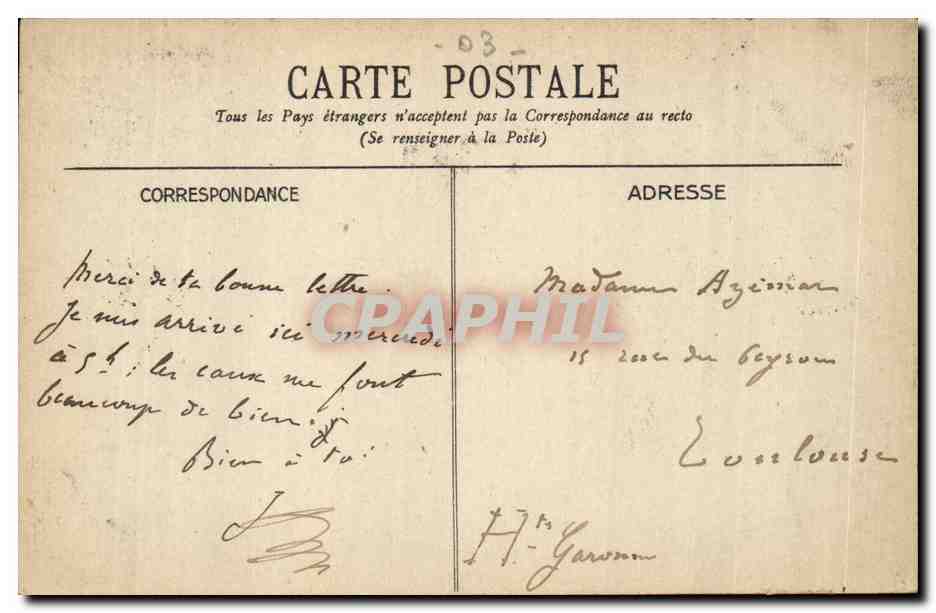 - 03 -
CARTE POSTALE
Tous les Pays étrangers n'acceptent pas la Correspondance au recto
(Se renseigner à la Poste)
CORRESPONDANCE
Merci de ta bonne lettre.
Je suis arrivé ici mercredi
à 5h; les eaux me font
beaucoup de bien.
Bien à toi
CPAPHIL
ADRESSE
Madame Azémar
15 rue du Peyrou
Toulouse
Hte Garonne